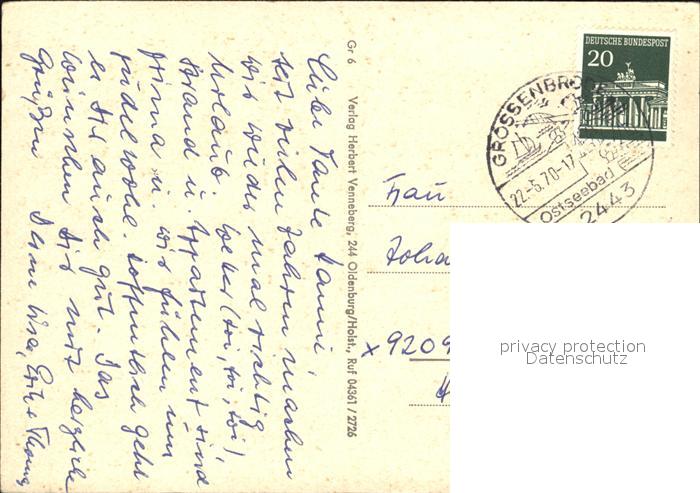 Liebe Tante Hanni,
seit vielen Jahren machen
wir wieder mal richtig
Urlaub. Wetter (toi, toi, toi),
Strand u. Appartement sind
prima u. wir fühlen uns
pudelwohl. Hoffentlich geht
es Dir auch gut. Das
wünschen Dir mit herzliche
Grüßen Deine Lisa, Erich + Thomas
Gr 6 Verlag Herbert Venneberg, 244 Oldenburg/Holst., Ruf 04361 / 2726
DEUTSCHE BUNDESPOST
20
GROSSENBRODE
22.-6.70-17
Ostseebad
2443
Frau
Joha
x 9209
privacy protection
Datenschutz